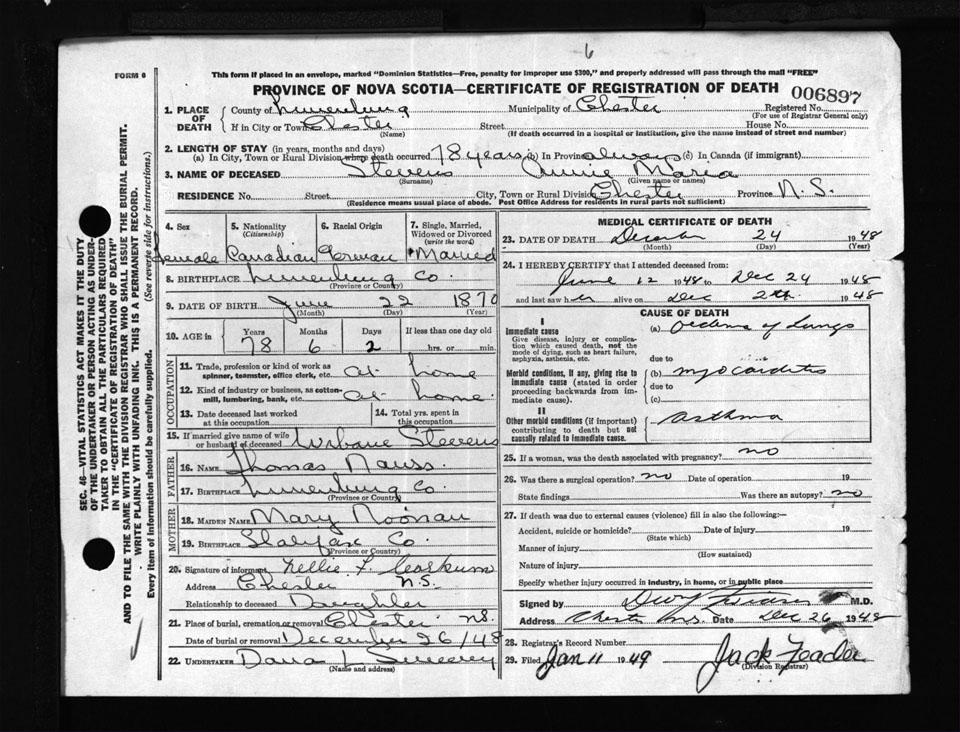 6
FORM 6
This form if placed in an envelope, marked "Dominion Statistics—Free, penalty for improper use $300," and properly addressed will pass through the mail "FREE"
PROVINCE OF NOVA SCOTIA—CERTIFICATE OF REGISTRATION OF DEATH
006897
SEC. 46—VITAL STATISTICS ACT MAKES IT THE DUTY
OF THE UNDERTAKER OR PERSON ACTING AS UNDER-
TAKER TO OBTAIN ALL THE PARTICULARS REQUIRED
IN THE "CERTIFICATE OF REGISTRATION OF DEATH"
AND TO FILE THE SAME WITH THE DIVISION REGISTRAR WHO SHALL ISSUE THE BURIAL PERMIT.
WRITE PLAINLY WITH UNFADING INK. THIS IS A PERMANENT RECORD.
Every item of information should be carefully supplied. (See reverse side for instructions.)
1. PLACE OF DEATH County of Lunenburg Municipality of Chester Registered No.
(For use of Registrar General only)
If in City or Town Chester Street House No.
(Name) (If death occurred in a hospital or institution, give the name instead of street and number)
2. LENGTH OF STAY (in years, months and days)
(a) In City, Town or Rural Division where death occurred 78 years (b) In Province always (c) In Canada (if immigrant)
3. NAME OF DECEASED Stevens Annie Maria
(Surname) (Given name or names)
RESIDENCE No. Street City, Town or Rural Division Chester Province N.S.
(Residence means usual place of abode. Post Office Address for residents in rural parts not sufficient)
4. Sex 5. Nationality (Citizenship) 6. Racial Origin 7. Single, Married, Widowed or Divorced (write the word)
Female Canadian German Married
8. BIRTHPLACE Lunenburg Co.
(Province or Country)
9. DATE OF BIRTH June 22 1870
(Month) (Day) (Year)
10. AGE in Years Months Days If less than one day old
78 6 2 hrs. or min.
OCCUPATION
11. Trade, profession or kind of work as spinner, teamster, office clerk, etc. at home
12. Kind of industry or business, as cotton-mill, lumbering, bank, etc. at home.
13. Date deceased last worked at this occupation 14. Total yrs. spent in this occupation
15. If married give name of wife or husband of deceased Urbane Stevens
FATHER
16. NAME Thomas Nauss.
17. BIRTHPLACE Lunenburg Co.
(Province or Country)
MOTHER
18. MAIDEN NAME Mary Noonan
19. BIRTHPLACE Halifax Co.
(Province or Country)
20. Signature of informant Nellie F. Corkum
Address Chester N.S.
Relationship to deceased Daughter
21. Place of burial, cremation or removal Chester N.S.
Date of burial or removal December 26/48
22. UNDERTAKER Dana L Sweeney
(Name and address)
MEDICAL CERTIFICATE OF DEATH
23. DATE OF DEATH December 24 1948
(Month) (Day) (Year)
24. I HEREBY CERTIFY that I attended deceased from:
June 12 1948 to Dec 24 1948
and last saw her alive on Dec 1948
CAUSE OF DEATH
I
Immediate cause (a) Oedema of Lungs
Give disease, injury or complication which caused death, not the mode of dying, such as heart failure, asphyxia, asthenia, etc.
due to
Morbid conditions, if any, giving rise to immediate cause (stated in order proceeding backwards from immediate cause). (b) myocarditis
due to
(c)
II
Other morbid conditions (if important) contributing to death but not causally related to immediate cause. asthma
25. If a woman, was the death associated with pregnancy? no
26. Was there a surgical operation? no Date of operation 19
State findings Was there an autopsy? no
27. If death was due to external causes (violence) fill in also the following:—
Accident, suicide or homicide? Date of injury 19
(State which)
Manner of injury
(How sustained)
Nature of injury
Specify whether injury occurred in industry, in home, or in public place
Signed by M.D.
Address Chester N.S. Date Dec 26 1948
28. Registrar's Record Number
29. Filed Jan 11 1949 Jack Zeader
(Division Registrar)